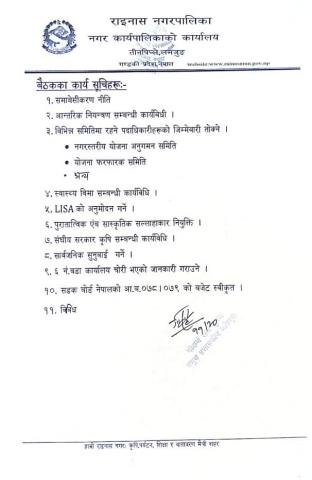 राइनास नगरपालिका
नगर कार्यपालिकाको कार्यालय
तीनपिप्ले, लमजुङ
गण्डकी प्रदेश, नेपाल
website:www.rainasmun.gov.np
बैठकका कार्य सूचिहरूः-
१. समावेसीकरण नीति
२. आन्तरिक नियन्त्रण सम्बन्धी कार्यबिधी ।
३. विभिन्न समितिमा रहने पदाधिकारीहरूको जिम्मेबारी तोक्ने ।
• नगरस्तरीय योजना अनुगमन समिति
• योजना फरफारक समिति
•
४. स्वास्थ्य विमा सम्बन्धी कार्यविधि ।
५. LISA को अनुमोदन गर्ने ।
६. पुरातात्विक एंव सास्कृतिक सल्लाहाकार नियुक्ति ।
७. संघीय सरकार कृषि सम्बन्धी कार्यविधि ।
८. सार्वजनिक सुनुवाई गर्ने ।
९. ६ नं.वडा कार्यालय चोरी भएको जानकारी गराउने ।
१०. सडक बोर्ड नेपालको आ.व.०७८।०७९ को बजेट स्वीकृत ।
११. विविध
११/२०
हाम्रो राइनास नगरः कृषि,पर्यटन, शिक्षा र वातावरण मैत्री शहर